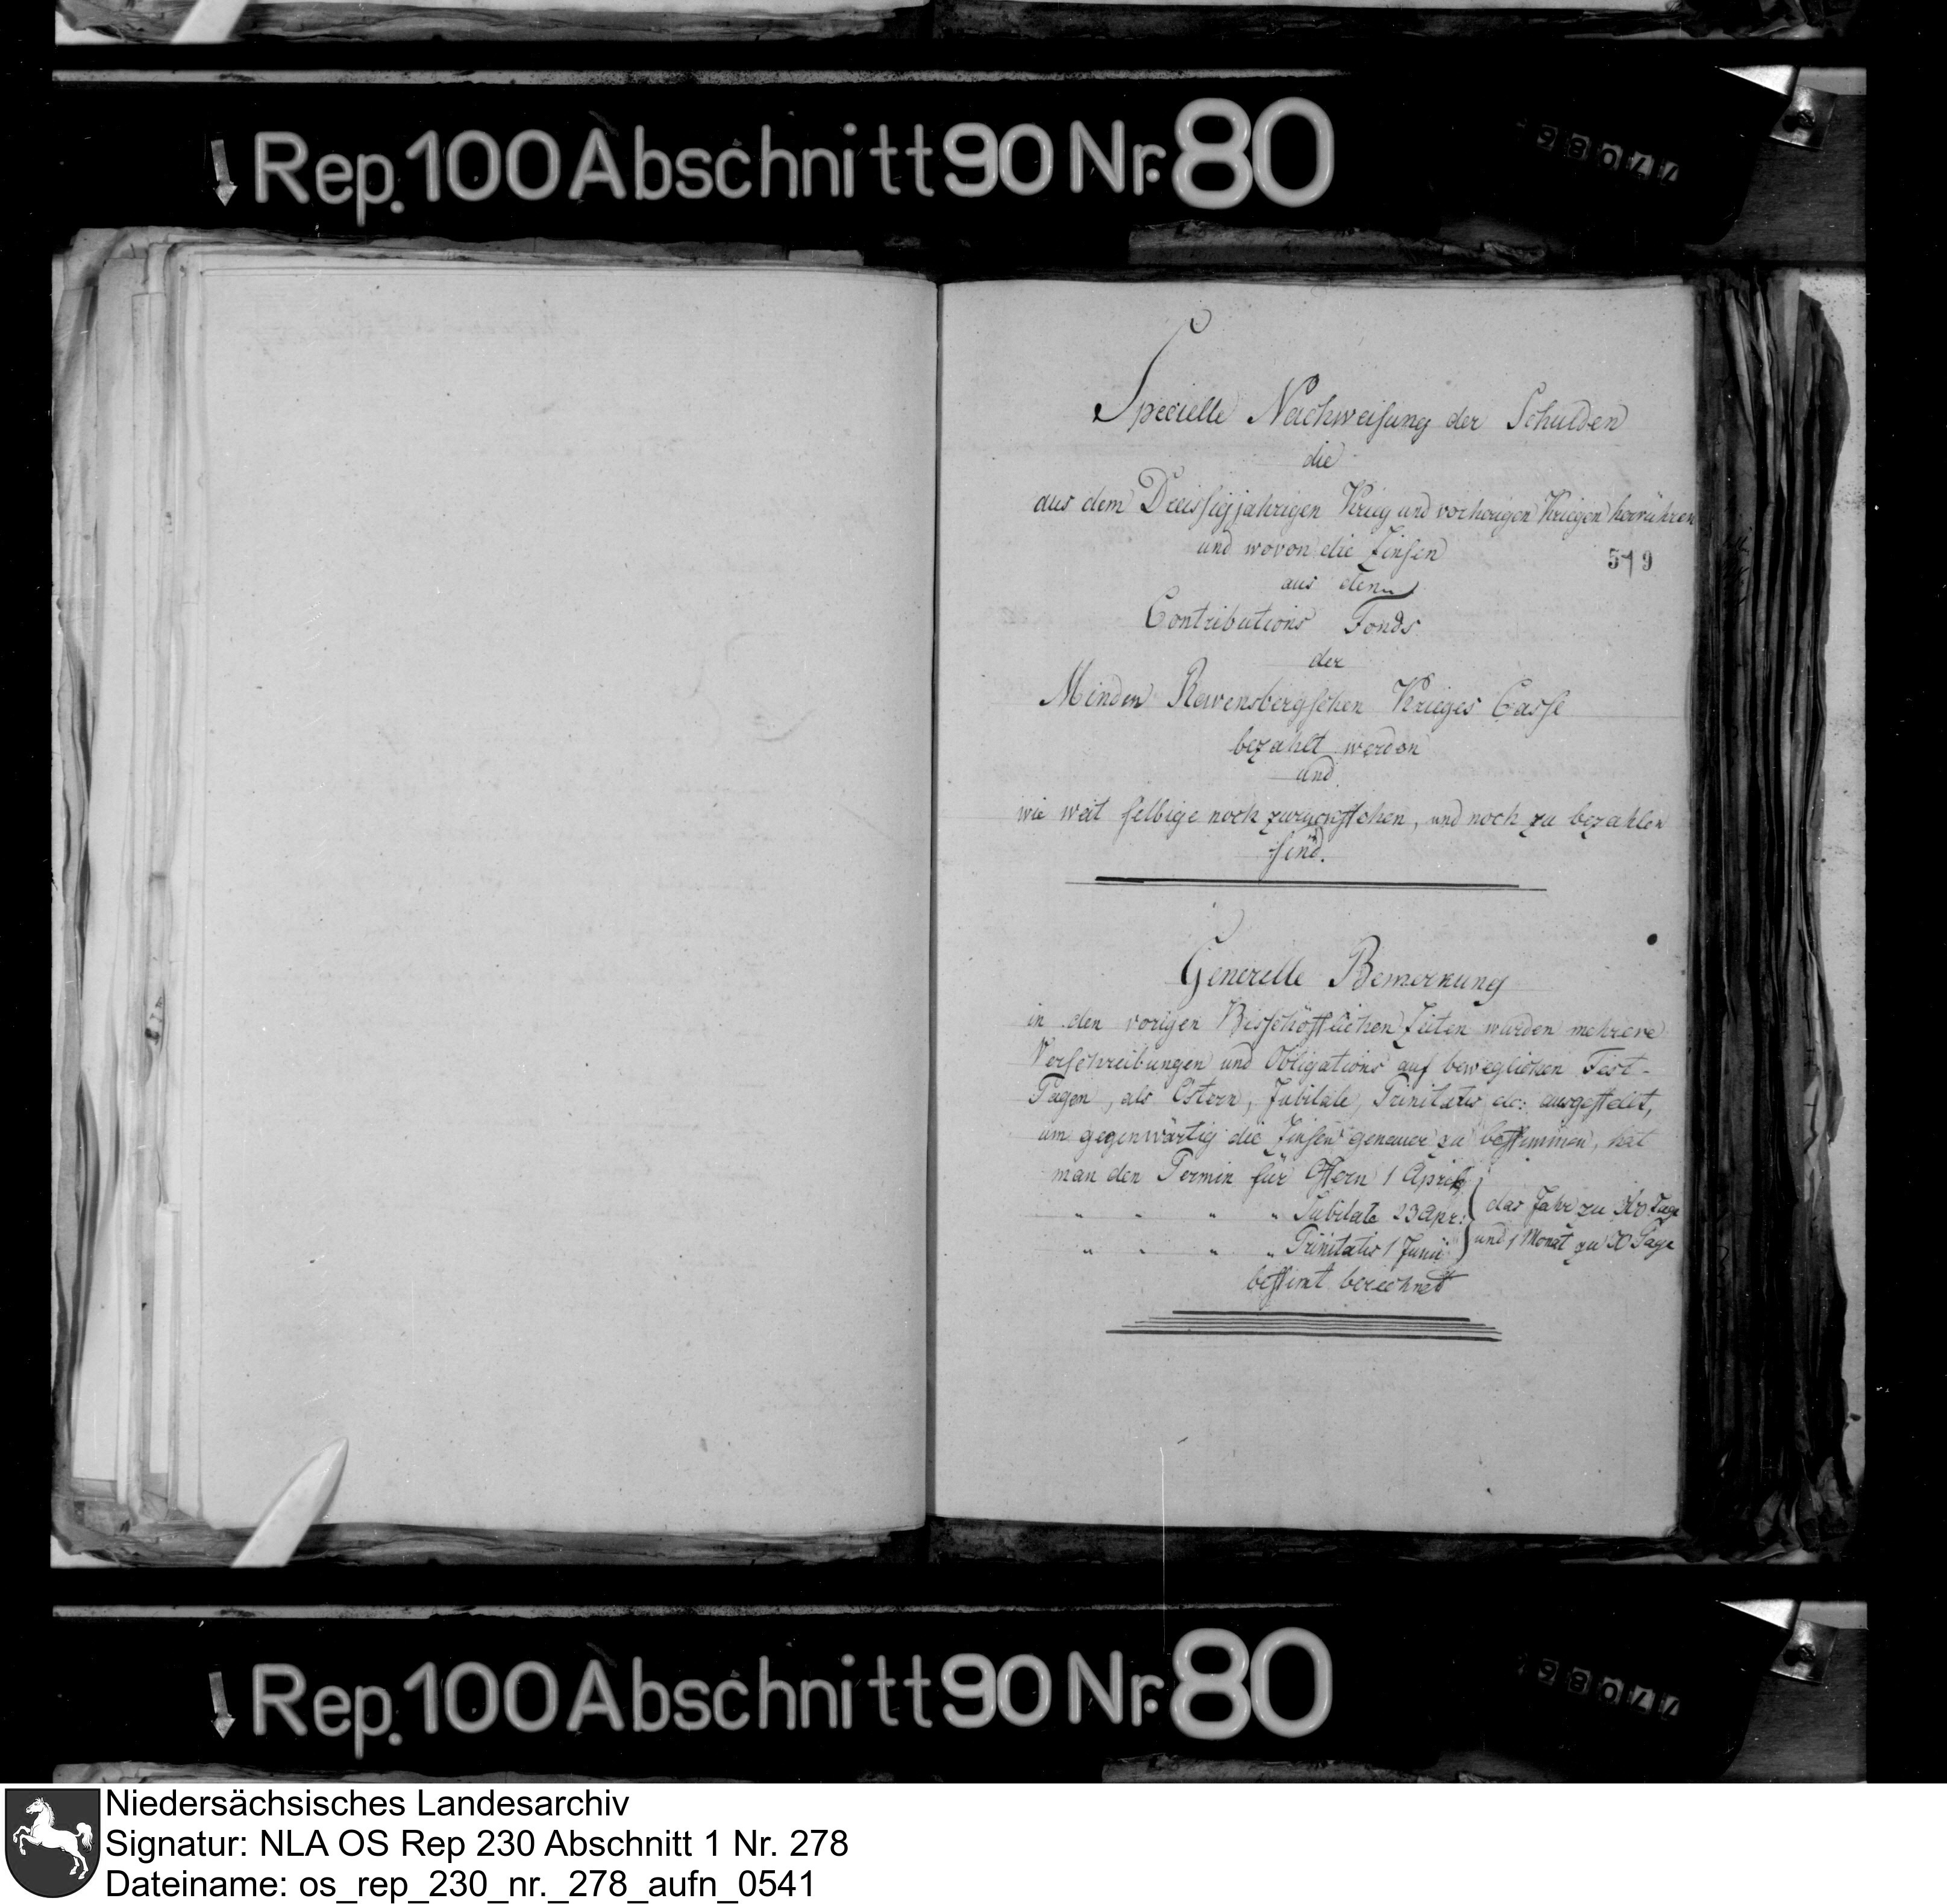 Rep. 100 Abschnitt 90 Nr. 80
Specielle Nachweisung der Schulden
die
aus dem Dreissigjahrigen Krieg und vorherigen Kriegen herrühren
und wovon die Zinsen
519
aus dem
Contributions Fonds
der
Minden Ravensbergschen Krieges Casse
bezahlt werden
und
wie weit selbige noch, und noch zu bezahlen
sind.
Generelle Bemerkung
in den vorigen Bisschöfflichen Zeiten wurden mehrere
Verschreibungen und Obligations auf beweglichen Fest-
Tagen, als Ostern, Jubilate, Trinitatis etc: ausgestelt,
um gegenwärtig die Zinsen genauer zu bestimmen, hat
man den Termin für Ostern 1 April
" " " " Jubilate 23 Apr: das Jahr zu Tage
" " " " Trinitatis 1 Junii und 1 Monat zu Tage
bestimt berechnet
Rep. 100 Abschnitt 90 Nr. 80
Niedersächsisches Landesarchiv
Signatur: NLA OS Rep 230 Abschnitt 1 Nr. 278
Dateiname: os_rep_230_nr._278_aufn_0541